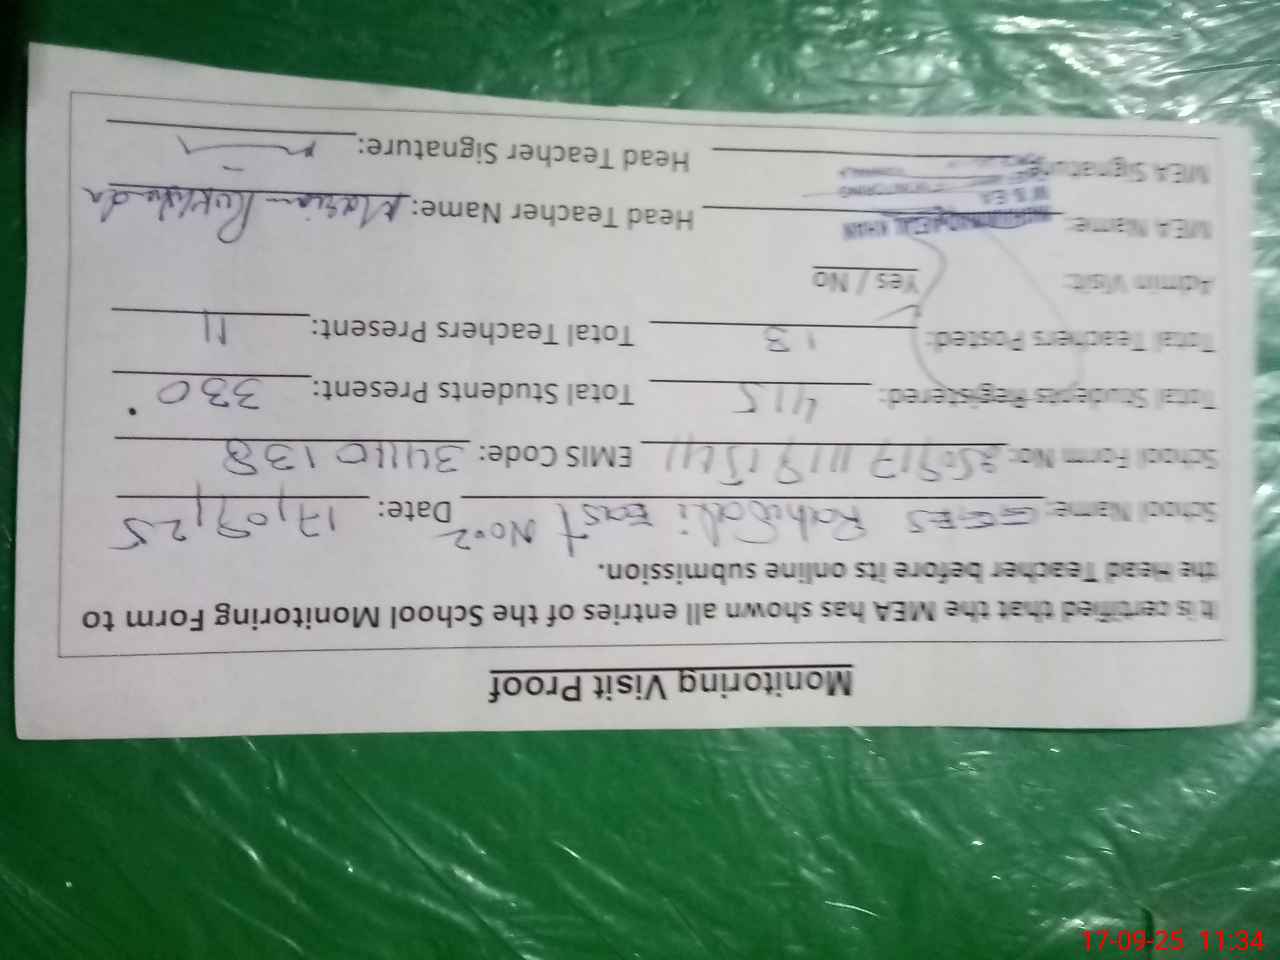 Monitoring Visit Proof
It is certified that the MEA has shown all entries of the School Monitoring Form to
the Head Teacher before its online submission.
School Name: GGES Rohi Dali East No.2 Date: 17/09/25
School Form No: EMIS Code: 34110138
Total Students Registered: 415 Total Students Present: 330
Total Teachers Posted: 13 Total Teachers Present: 11
Admin Visit: Yes / No
MEA Name: KHAN Head Teacher Name:
MEA Signature: Head Teacher Signature:
17-09-25 11:34